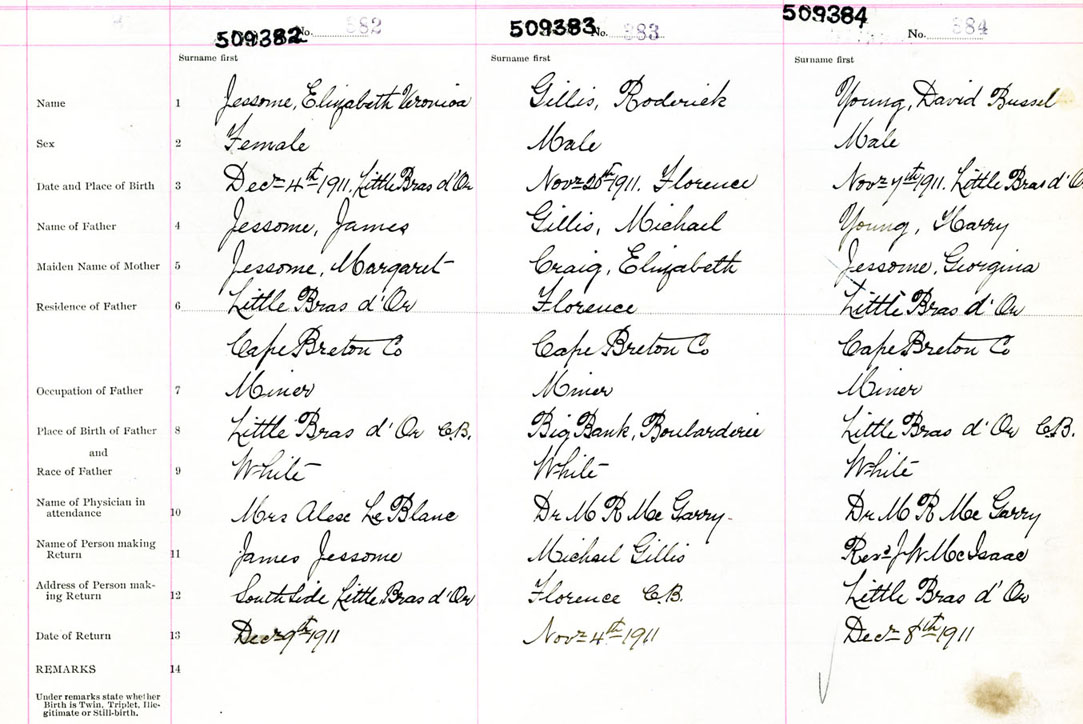 509382 No. 882 509383 No. 883 509384 No. 884
Surname first Surname first Surname first
Name 1 Jessome, Elizabeth Veronica Gillis, Roderick Young, David Russel
Sex 2 Female Male Male
Date and Place of Birth 3 Dec 4th 1911. Little Bras d'Or Nov 20th 1911. Florence Nov 7th 1911. Little Bras d'O
Name of Father 4 Jessome, James Gillis, Michael Young, Harry
Maiden Name of Mother 5 Jessome, Margaret Craig, Elizabeth Jessome, Georgina
Residence of Father 6 Little Bras d'Or Florence Little Bras d'Or
Cape Breton Co Cape Breton Co Cape Breton Co
Occupation of Father 7 Miner Miner Miner
Place of Birth of Father 8 Little Bras d'Or C.B. Big Bank, Boularderie Little Bras d'Or C.B.
and
Race of Father 9 White White White
Name of Physician in
attendance 10 Mrs Alese Le Blanc Dr M R Mc Garry- Dr M R Mc Garry
Name of Person making
Return 11 James Jessome Michael Gillis Revd J W McIsaac
Address of Person mak-
ing Return 12 South Side Little Bras d'Or Florence C.B. Little Bras d'Or
Date of Return 13 Dec 9th 1911 Nov 4th 1911 Dec 8th 1911
REMARKS 14
Under remarks state whether
Birth is Twin, Triplet, Ille-
gitimate or Still-birth.